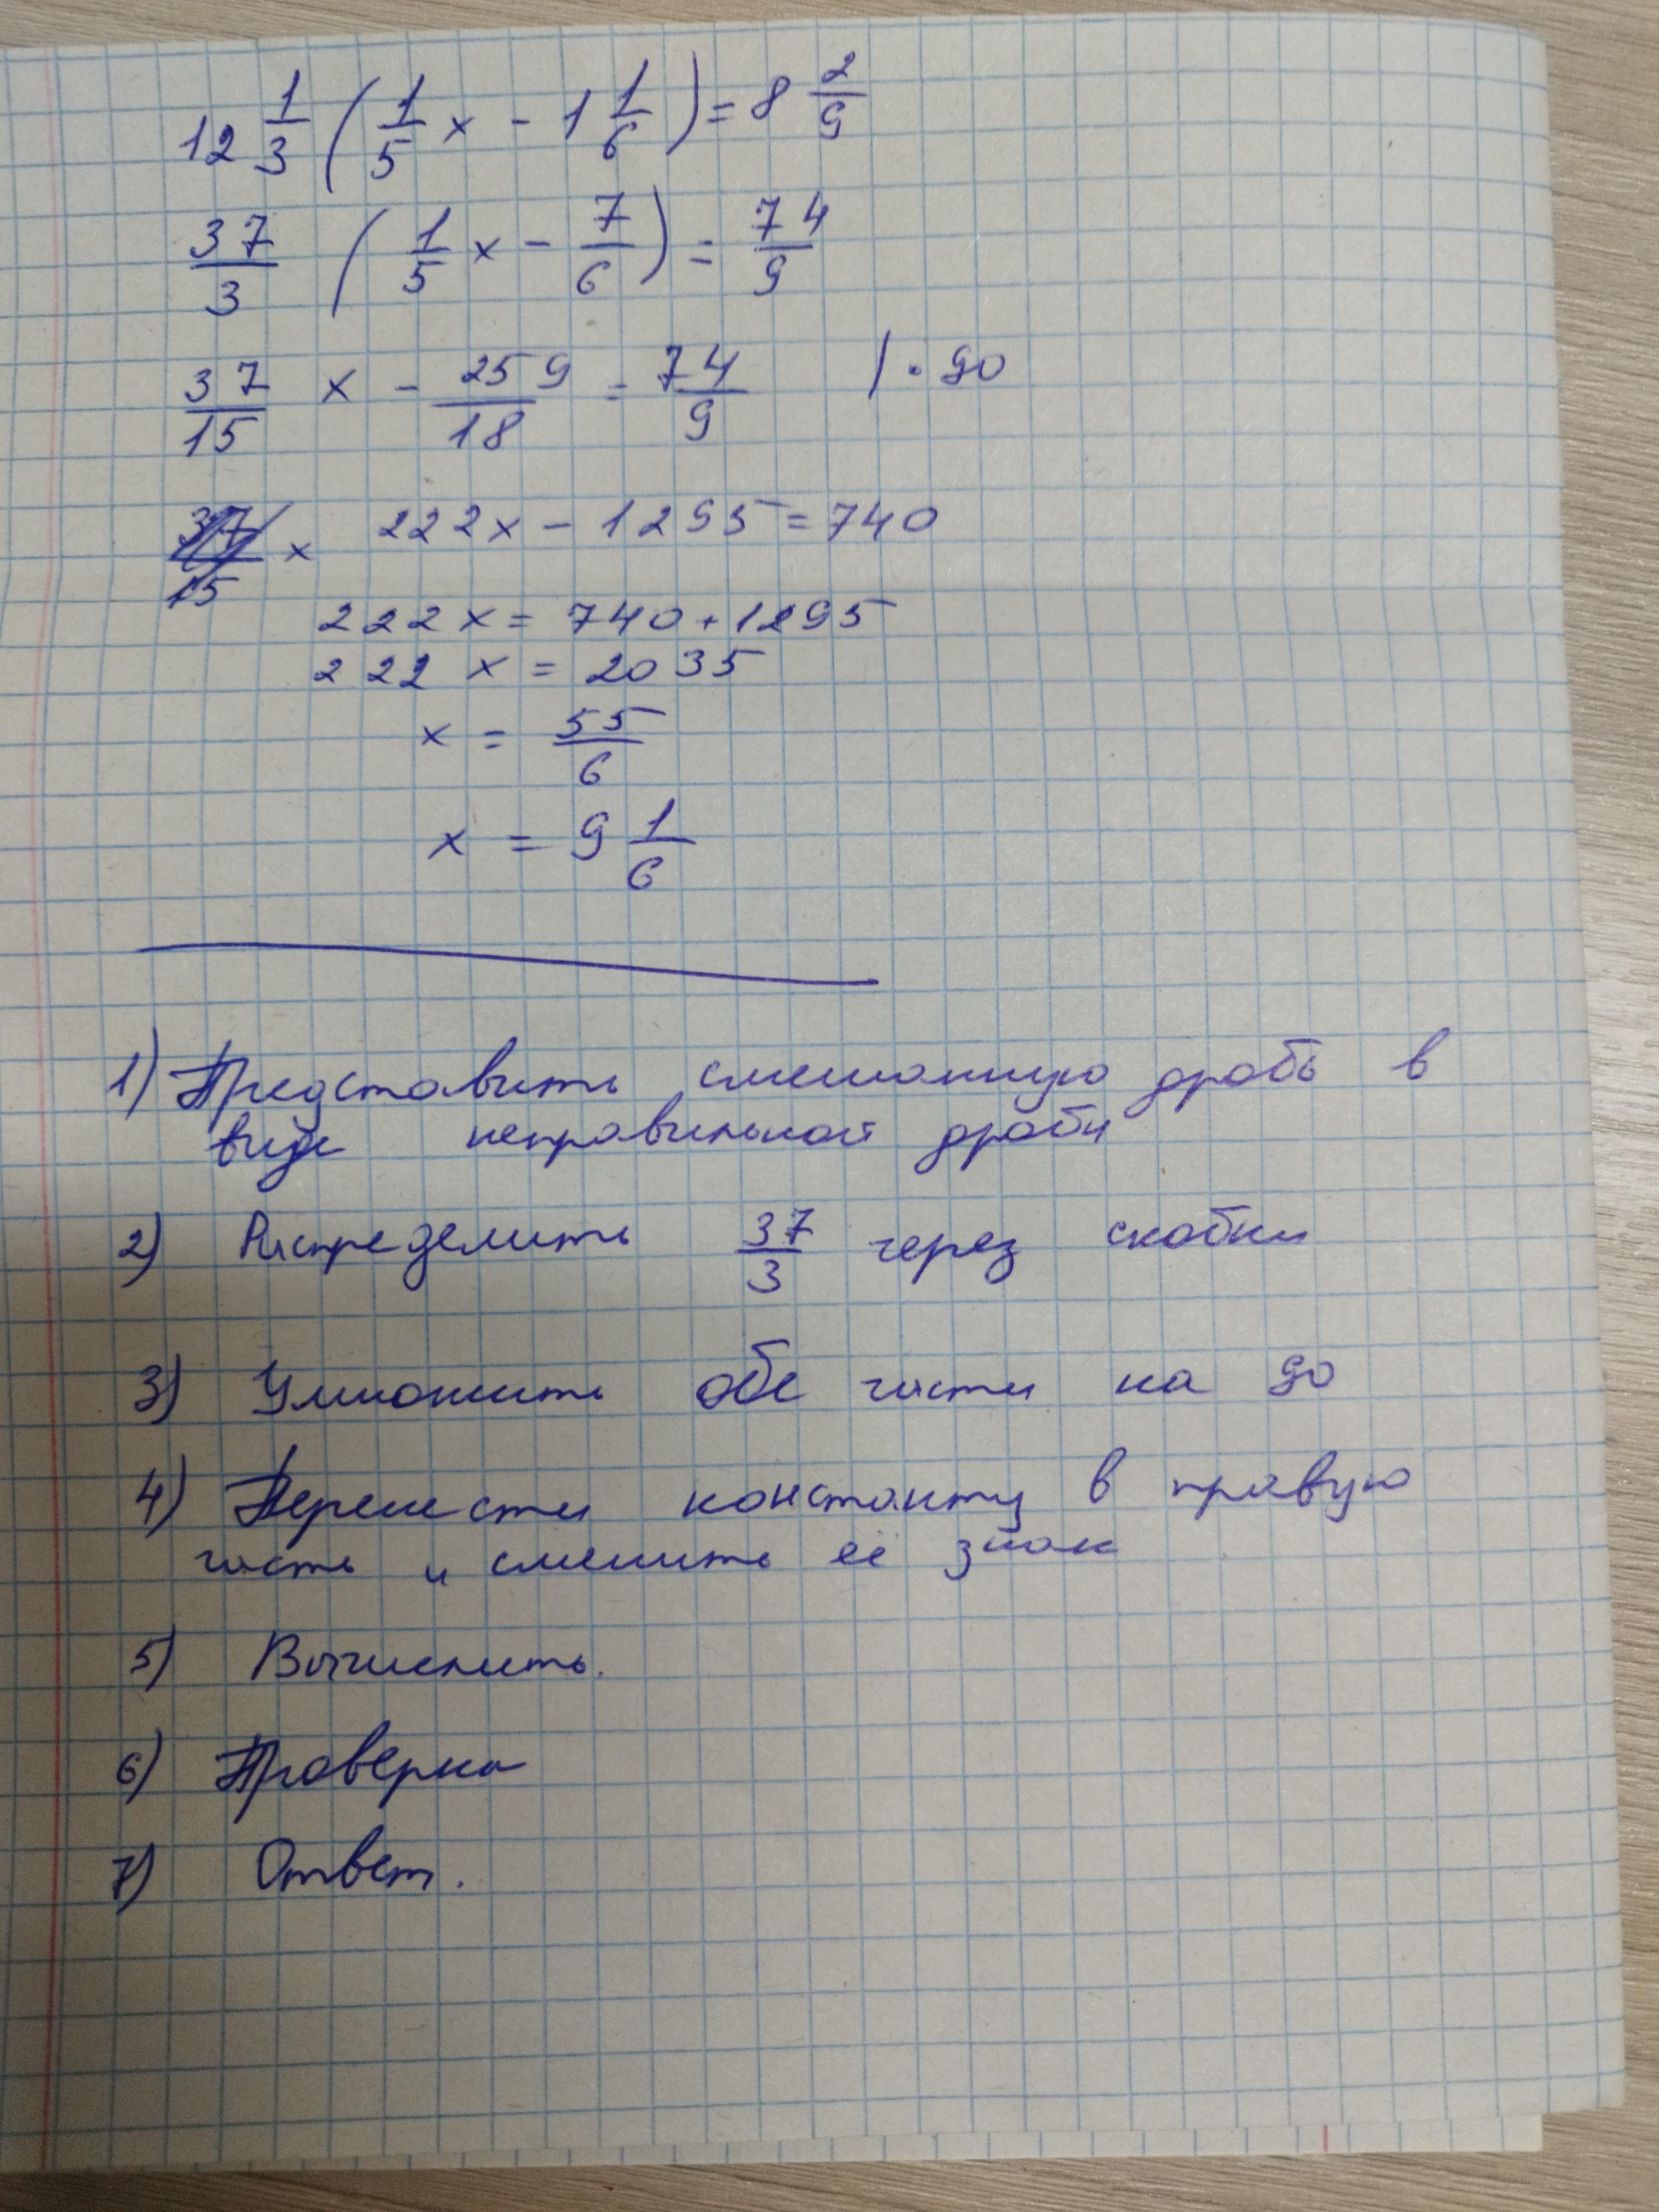 12 1/3 (1/5 x - 1 1/6) = 8 2/9
37/3 (1/5 x - 7/6) = 74/9
37/15 x - 259/18 = 74/9 | · 90
37/15 x 222x - 1295 = 740
222x = 740 + 1295
222 x = 2035
x = 55/6
x = 9 1/6
1) Представить смешанную дробь в
виде неправильной дроби
2) Распределить 37/3 через скобки
3) Умножить обе части на 90
4) Перенести константу в правую
часть и сменить её знак
5) Вычислить.
6) Проверка
7) Ответ.